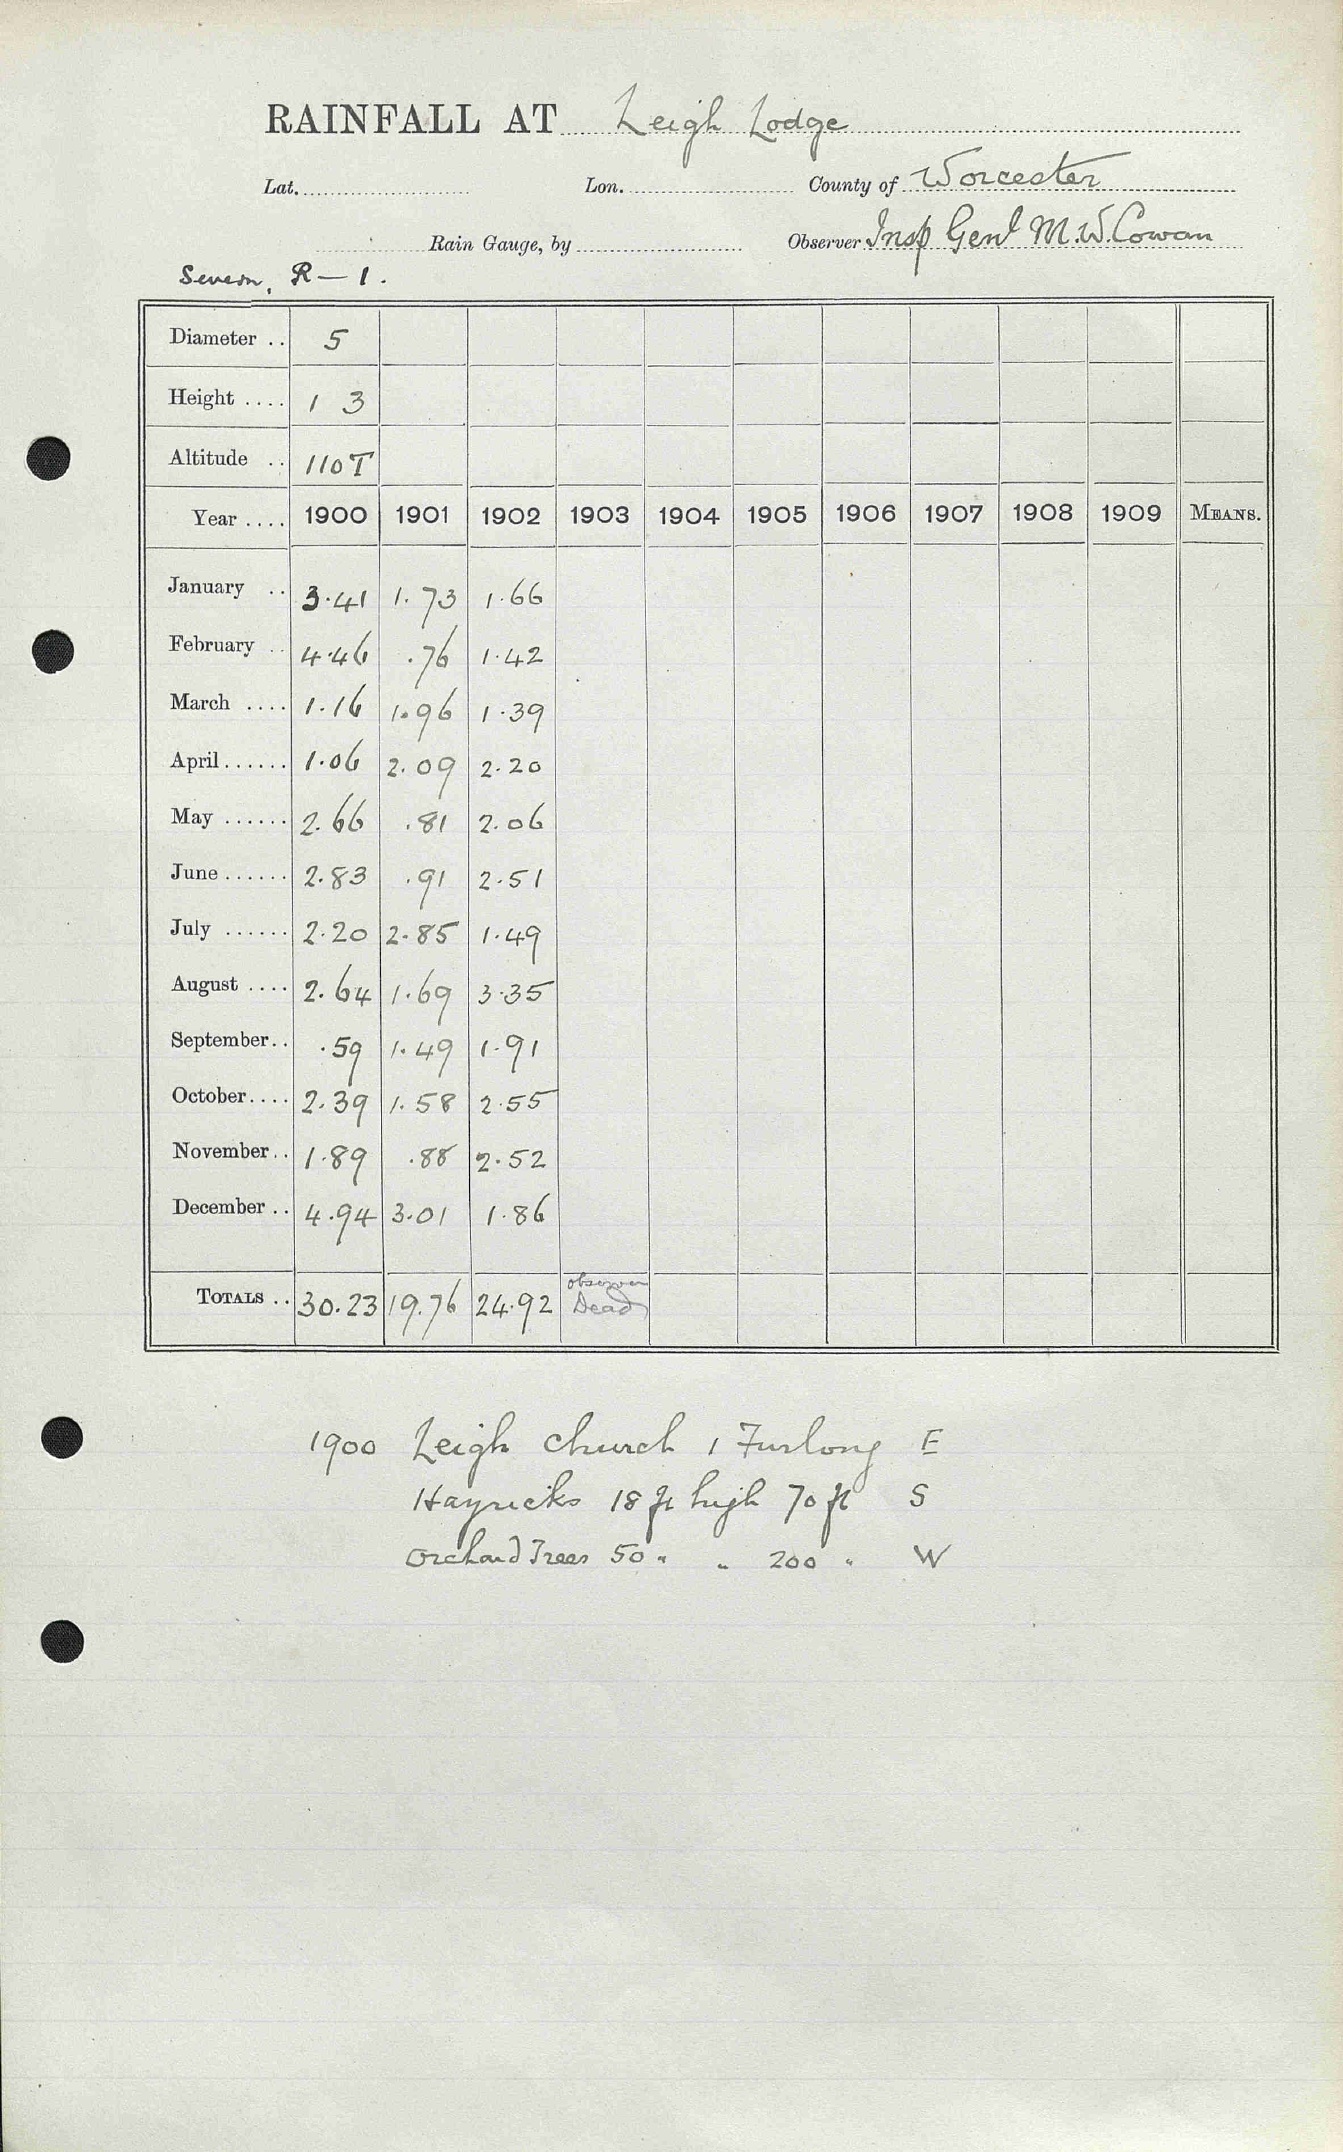 RAINFALL AT Leigh Lodge
Lat. Lon. County of Worcester
Rain Gauge, by Observer Insp Genl M.W. Cowan
Severn, R — 1.
Diameter .. 5
Height .... 1 3
Altitude .. 110 T
Year .... 1900 1901 1902 1903 1904 1905 1906 1907 1908 1909 MEANS.
January .. 3.41 1.73 1.66
February .. 4.46 .76 1.42
March .... 1.16 1.96 1.39
April ...... 1.06 2.09 2.20
May ...... 2.66 .81 2.06
June ...... 2.83 .91 2.51
July ...... 2.20 2.85 1.49
August .... 2.64 1.69 3.35
September .. .59 1.49 1.91
October .... 2.39 1.58 2.55
November .. 1.89 .88 2.52
December .. 4.94 3.01 1.86
TOTALS .. 30.23 19.76 24.92 observer Dead
1900 Leigh church 1 Furlong E
Hayricks 18 ft high 70 ft S
Orchard Trees 50 " " 200 " W